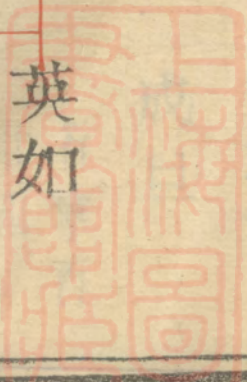 英如
上海圖
書館藏